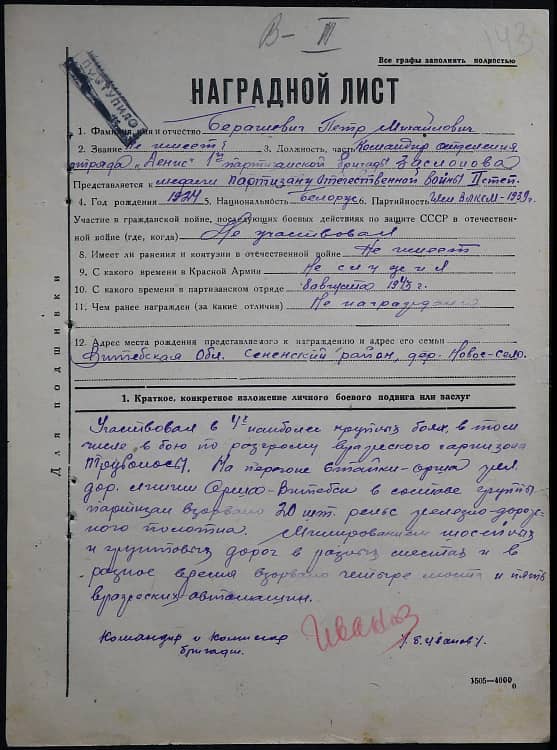 В- III
143
Все графы заполнять полностью
ПОСТУПИЛО
НАГРАДНОЙ ЛИСТ
1. Фамилия, имя и отчество Берашевич Петр Михайлович
2. Звание Не имеет 3. Должность, часть Командир отделения
отряда „Денис" 1й партизанской бригады Заслонова
Представляется к медали партизану отечественной войны II степ.
4. Год рождения 1924 5. Национальность Белорус 6. Партийность Член ВЛКСМ-1939г.
Участие в гражданской войне, последующих боевых действиях по защите СССР и отечествен-
ной войне (где, когда) Не участвовал
8. Имеет ли ранения и контузии в отечественной войне Не имеет
9. С какого времени в Красной Армии Не служил
10. С какого времени в партизанском отряде 8 августа 1943 г.
11. Чем ранее награжден (за какие отличия) Не награждался
12. Адрес места рождения представляемого к награждению и адрес его семьи
Витебская Обл. Сененский район, дер. Новое-село.
Для подшивки
1. Краткое, конкретное изложение личного боевого подвига или заслуг
Участвовал в 4х наиболее крупных боях, в том
числе в бою по разгрому вражеского гарнизона
На перегоне Стайки-Орша жел.
дор. линии Орша-Витебск в составе группы
партизан взорвано 20 шт. рельс железно-дорож-
ного полотна. Минированием шоссейных
и грунтовых дорог в разных местах и в
разное время взорвано четыре моста и пять
вражеских автомашин.
Командир и Комиссар
бригады
Иванов
/. Б. Иванов/.
1505—4000